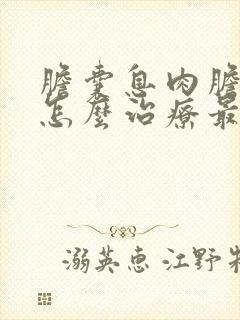 膽囊息肉膽
怎麼治療最
溺英惠 江野牧